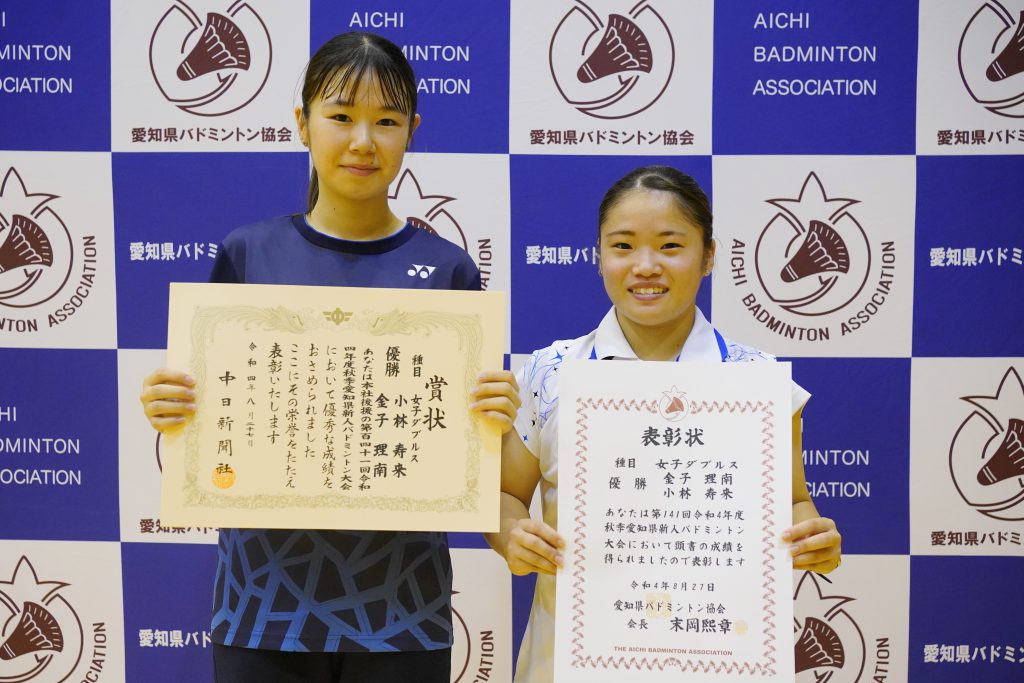 AICHI
BADMINTON
ASSOCIATION
愛知県バドミントン協会
AICHI
BADMINTON
ASSOCIATION
愛知県バドミントン協会
AICHI
BADMINTON
ASSOCIATION
愛知県バドミントン協会
愛知県バドミ
愛知県バドミ
AICHI BADMINTON ASSOCIATION
愛知県バドミン
MINTON ASSOCIATION
AICHI
BADMINTON
ASSOCIATION
愛知県バドミントン協会
愛知県バドミ
愛知県バドミン
賞状
種目 女子ダブルス
優勝 小林 寿来
金子 理南
あなたは本社後援の第百四十一回令和
四年度秋季愛知県新人バドミントン大会
において優秀な成績を
おさめられました
ここにその栄誉をたたえ
表彰いたします
令和四年八月二十七日
中日新聞社
表彰状
種目 女子ダブルス
優勝 金子 理南
小林 寿来
あなたは第141回令和4年度
秋季愛知県新人バドミントン
大会において頭書の成績を
得られましたので表彰します
令和4年8月27日
愛知県バドミントン協会
会長 末岡熙章
THE AICHI BADMINTON ASSOCIATION